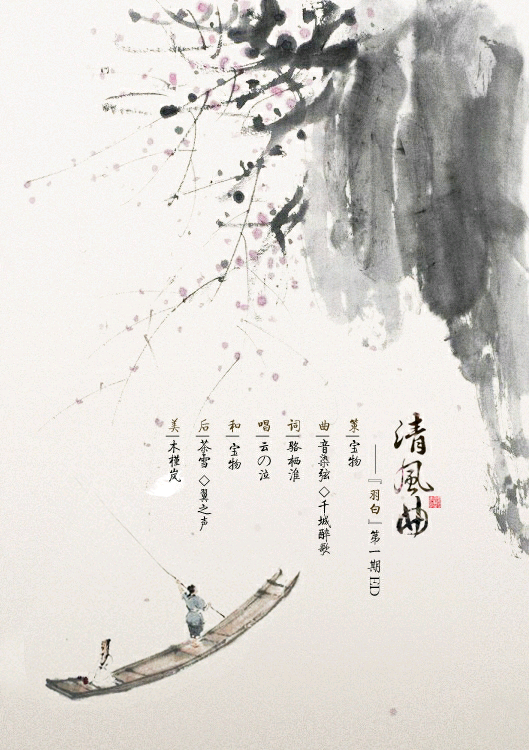 清風曲
——『羽白』第一期ED
策|宝物
曲|音染弦◇千城醉歌
词|骆栖淮
唱|云の泣
和|宝物
后|茶雪◇翼之声
美|木槿岚